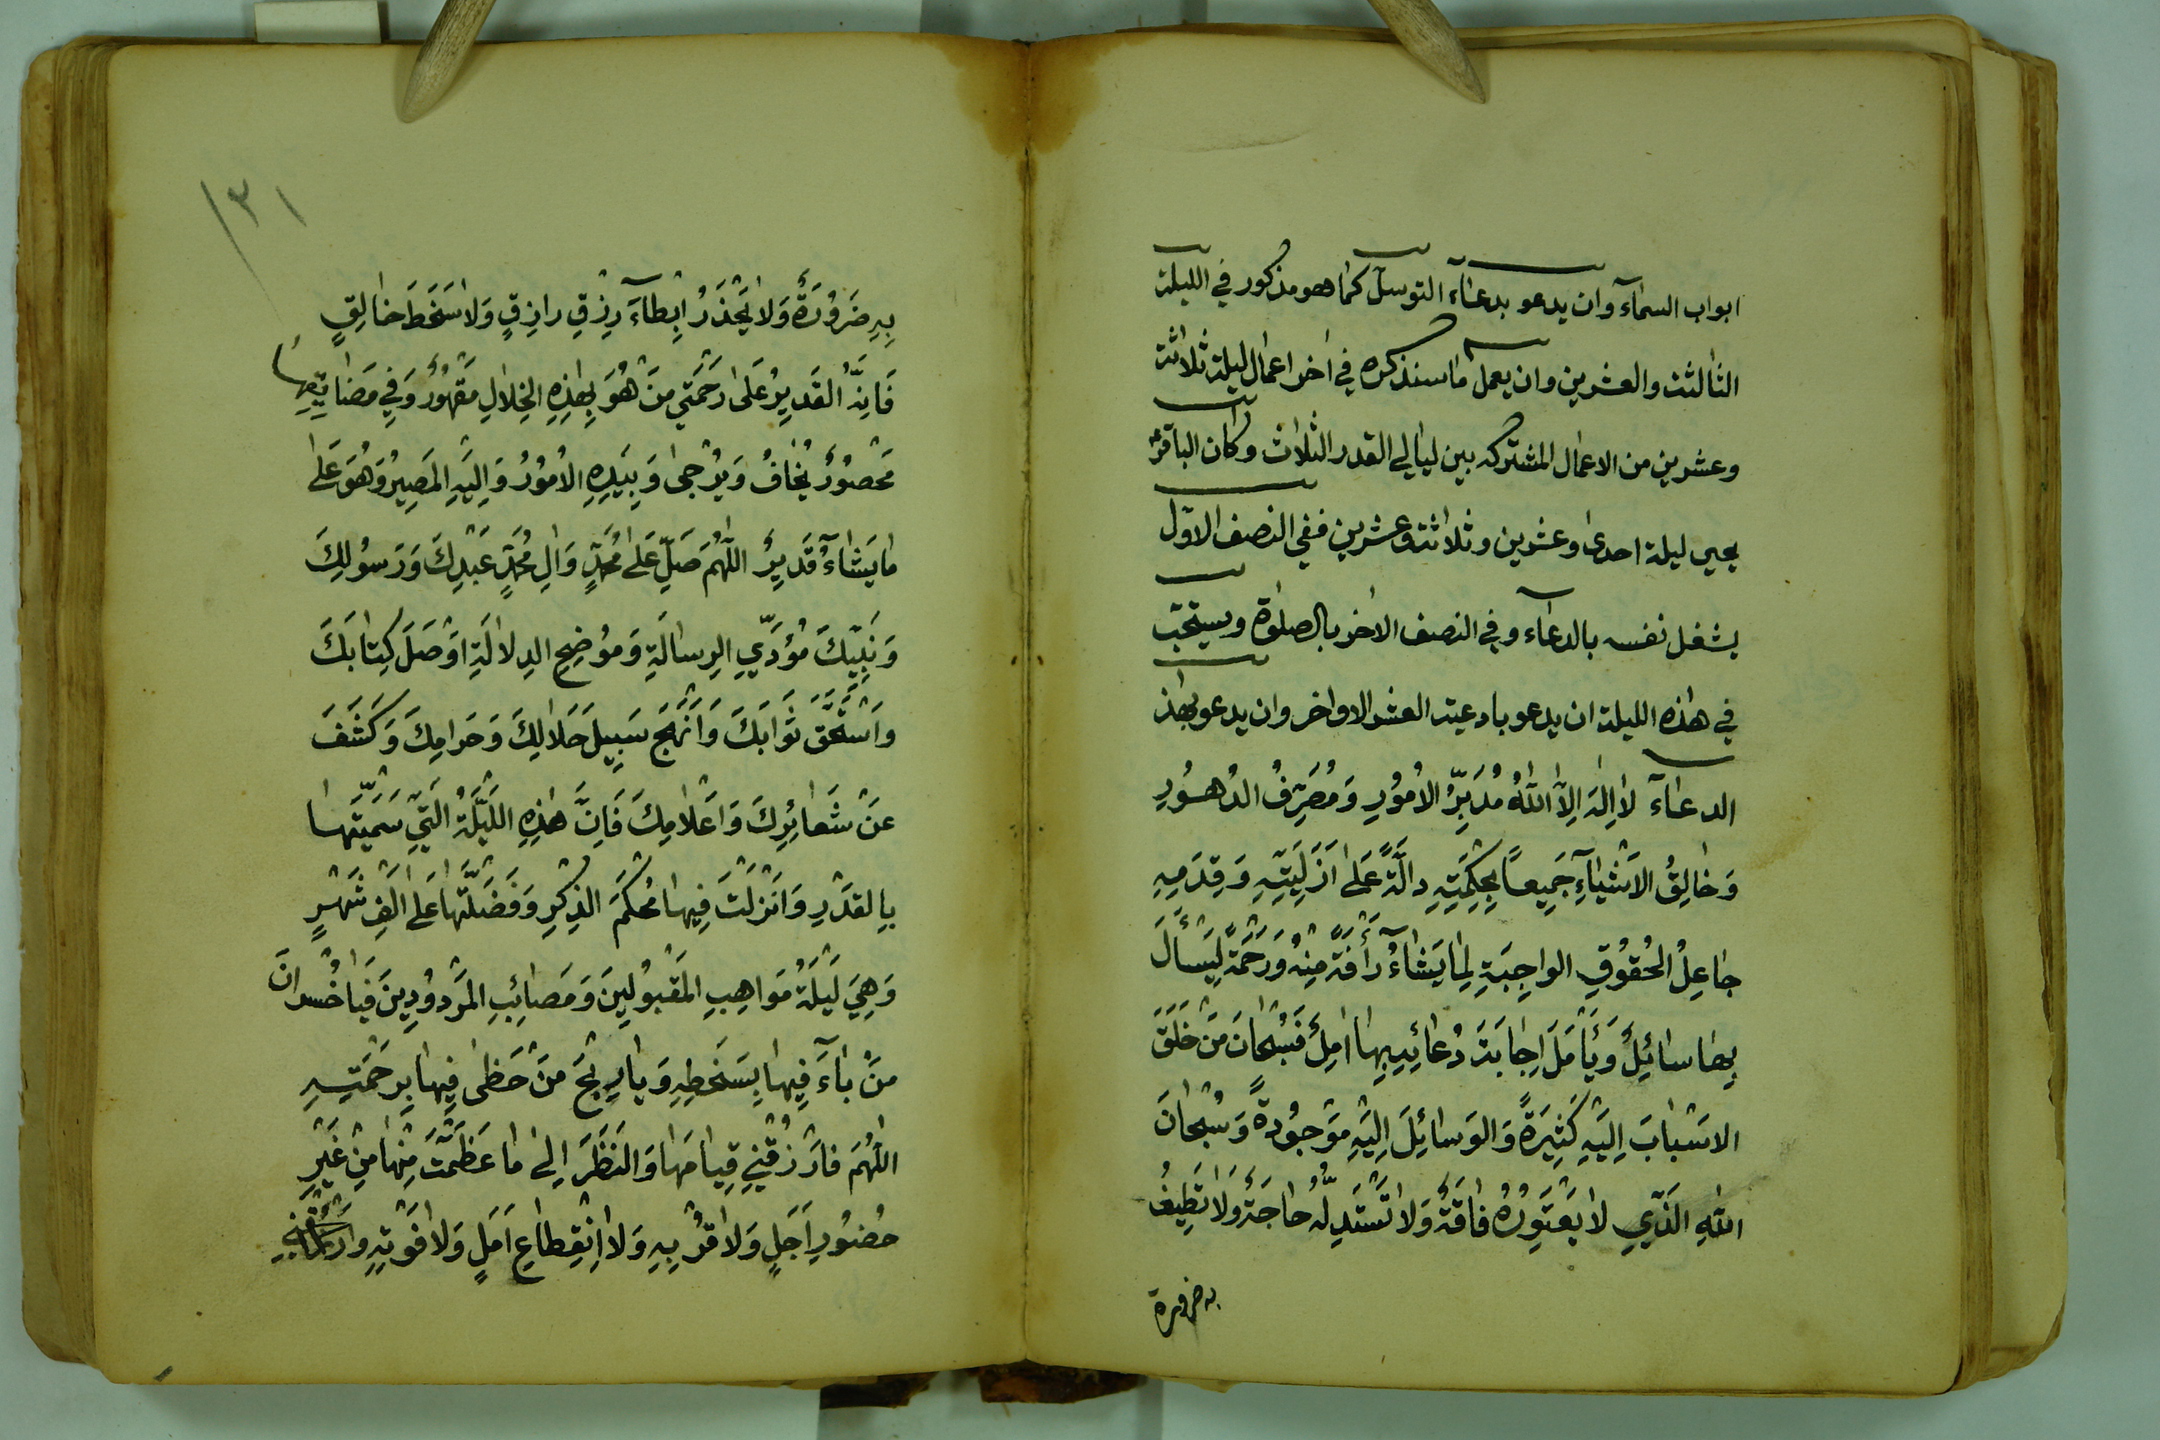 ابواب السمآء وان يدعو بدعآء التوسل كما هو مذكور في الليلة
الثالثة والعشرين وان يعمل ما سنذكره في اخر اعمال ليلة ثلاثة
وعشرين من الاعمال المشتركه بين ليالي القدر الثلاث وكان الباقر ع
يحيي ليلة احدى وعشرين وثلاثة وعشرين ففي النصف الاوّل
يشغل نفسه بالدعآء وفي النصف الاخر بالصلوة ويستحبّ
في هذه الليلة ان يدعو بادعية العشر الاواخر وان يدعو بهذ
الدعآء لا اِلهَ اِلاَّ اللهُ مُدَبِّرُ الاُمُوُرِ وَمُصَرِّفُ الدُهوُرِ
وَخالِقُ الاَشْيآءِ جَمِيعاً بِحِكْمَتِهِ دالَّةً عَلى اَزَلِيَّتِهِ وَقِدَمِهِ
جاعِلُ الحُقوُقِ الواجِبَةِ لِما يَشآءُ رَأْفَةً مِنْهُ وَرَحْمَةً لِيَسْأَلَ
بِها سائِلٌ وَيَأْمَلَ اِجابَةَ دُعائِهِ بِها امِلٌ فَسُبْحانَ مَنْ خَلَقَ
الاَسْبابَ اِلَيْهِ كَثِيرَةً وَالوَسائِلَ اِلَيْهِ مَوْجوُدةً وَسُبْحانَ
اللهِ الَّذِي لا يَعْتَوِرُهُ فاقَةٌ وَلا تَسْتَدِلُّهُ حاجَةٌ وَلا تَطِيفُ
به ضرورة
١٣١
بِهِ ضَرُورَةٌ وَلا يَحْذَرُ اِبْطآءَ رِزْقِ رازِقٍ وَلا سَخَطَ خالِقٍ
فَاِنَّهُ القَدِيرُ عَلى رَحْمَتِي مَنْ هُوَ بِهذِهِ الخِلالِ مَقْهُوُرٌ وَفِي مَضايِقِها
مَحْصوُرٌ يُخافُ وَيُرْجى وَبِيَدِهِ الاُمُوُرُ وَاِلَيْهِ المَصِيرُ وَهُوَ عَلى
ما يَشآءُ قَدِيرٌ اللّهُمَّ صَلِّ عَلى مُحَمَّدٍ وَالِ مُحَمَّدٍ عَبْدِكَ وَرَسوُلِكَ
وَنَبِيِّكَ مُؤَدِّيِ الرِسالَةِ وَمُوْضِحِ الدِلالَةِ اَوْصَلَ كِتابَكَ
وَاَسْتَحَقَّ ثَوابَكَ وَاَنْهَجَ سَبِيلَ حَلالِكَ وَحَرامِكَ وَكَشَفَ
عَنْ شَعائِرِكَ وَاَعْلامِكَ فَاِنَّ هذِهِ اللَّيْلَةُ الَّتِي سَمَّيْتَها
بِالقَدْرِ وَاَنْزَلْتَ فِيها مُحْكَمَ الذِكْرِ وَفَضَّلْتَها عَلى اَلْفِ شَهْرٍ
وَهِيَ لَيْلَةُ مَواهِبِ المَقْبُولِينَ وَمَصائِبِ المَرْدوُدِينَ فَيا خُسْرانَ
مَنْ بآءَ فِيها بِسَخَطِهِ وَيا رِبْحَ مَنْ حَظى فِيها بِرَحْمَتِهِ
اللّهُمَّ فارْزُقْنِي قِيامَها وَالنَظَرَ اِلى ما عَظَّمْتَ مِنْها مِنْ غَيْرِ
حُضوُرِ اَجَلٍ وَلا قُرْبِهِ وَلا اِنْقِطاعِ اَمَلٍ وَلا فَوْتِهِ